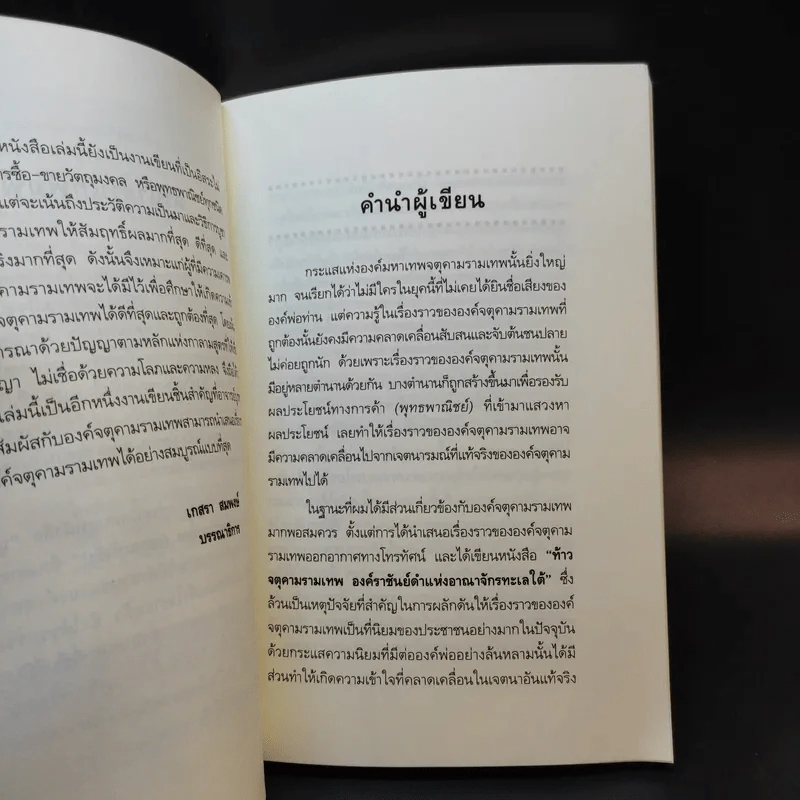 หนังสือเล่มนี้ยังเป็นงานเขียนที่เป็นอิสระไม่
ารซื้อ-ขายวัตถุมงคล หรือพุทธพาณิชย์ทุกชนิด
แต่จะเน้นถึงประวัติความเป็นมาและวิธีการบูชา
รามเทพให้สัมฤทธิ์ผลมากที่สุด ดีที่สุด และ
ริงมากที่สุด ดังนั้นจึงเหมาะแก่ผู้ที่มีความเคารพ
คามรามเทพจะได้มีไว้เพื่อศึกษาให้เกิดความเข้
จตุคามรามเทพได้ดีที่สุดและถูกต้องที่สุด โดยเ
ารณาด้วยปัญญาตามหลักแห่งกาลามสูตรที่ให้ใช้
ญา ไม่เชื่อด้วยความโลภและความหลง จึงถือ
เล่มนี้เป็นอีกหนึ่งงานเขียนชิ้นสำคัญที่อาจารย์
สัมผัสกับองค์จตุคามรามเทพสามารถนำเสนอเรื่อง
ค์จตุคามรามเทพได้อย่างสมบูรณ์แบบที่สุด
เกสรา สมพงษ์
บรรณาธิการ
คำนำผู้เขียน
กระแสแห่งองค์มหาเทพจตุคามรามเทพนั้นยิ่งใหญ่
มาก จนเรียกได้ว่าไม่มีใครในยุคนี้ที่ไม่เคยได้ยินชื่อเสียงของ
องค์พ่อท่าน แต่ความรู้ในเรื่องราวขององค์จตุคามรามเทพที่
ถูกต้องนั้นยังคงมีความคลาดเคลื่อนสับสนและจับต้นชนปลาย
ไม่ค่อยถูกนัก ด้วยเพราะเรื่องราวขององค์จตุคามรามเทพนั้น
มีอยู่หลายตำนานด้วยกัน บางตำนานก็ถูกสร้างขึ้นมาเพื่อรองรับ
ผลประโยชน์ทางการค้า (พุทธพาณิชย์) ที่เข้ามาแสวงหา
ผลประโยชน์ เลยทำให้เรื่องราวขององค์จตุคามรามเทพอาจ
มีความคลาดเคลื่อนไปจากเจตนารมณ์ที่แท้จริงขององค์จตุคาม
รามเทพไปได้
ในฐานะที่ผมได้มีส่วนเกี่ยวข้องกับองค์จตุคามรามเทพ
มากพอสมควร ตั้งแต่การได้นำเสนอเรื่องราวขององค์จตุคาม
รามเทพออกอากาศทางโทรทัศน์ และได้เขียนหนังสือ “ท้าว
จตุคามรามเทพ องค์ราชันย์ดำแห่งอาณาจักรทะเลใต้” ซึ่ง
ล้วนเป็นเหตุปัจจัยที่สำคัญในการผลักดันให้เรื่องราวขององค์
จตุคามรามเทพเป็นที่นิยมของประชาชนอย่างมากในปัจจุบัน
ด้วยกระแสความนิยมที่มีต่อองค์พ่ออย่างล้นหลามนั้นได้มี
ส่วนทำให้เกิดความเข้าใจที่คลาดเคลื่อนในเจตนาอันแท้จริง